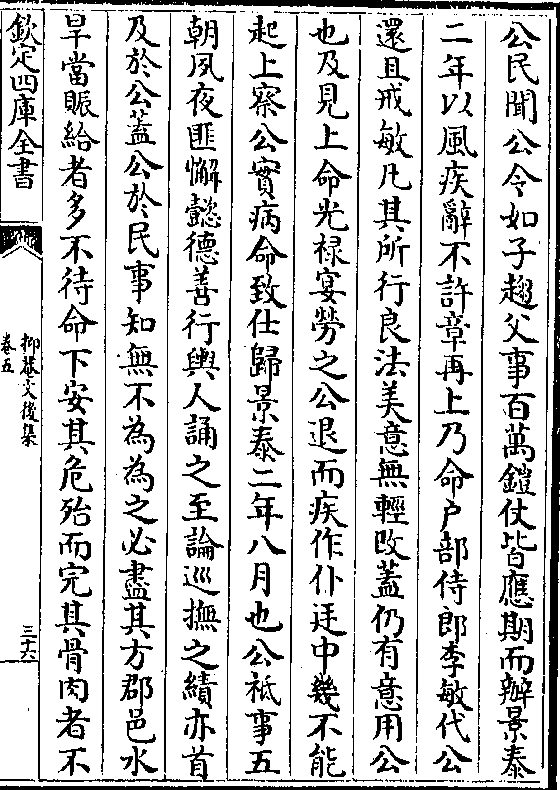 公民聞公令如子趨父事百萬鎧仗皆應期而辦景泰
二年以風疾辭不許章再上乃命户部侍郎李敏代公
還且戒敏凡其所行良法美意無輕改蓋仍有意用公
也及見上命光禄宴勞之公退而疾作仆廷中幾不能
起上察公實病命致仕歸景泰二年八月也公祗事五
朝夙夜匪懈懿德善行輿人誦之至論巡撫之績亦首
及於公蓋公於民事知無不為為之必盡其方郡邑水
旱當賑給者多不待命下安其危殆而完其骨肉者不
欽定四庫全書
抑菴文後集
卷五
三十六